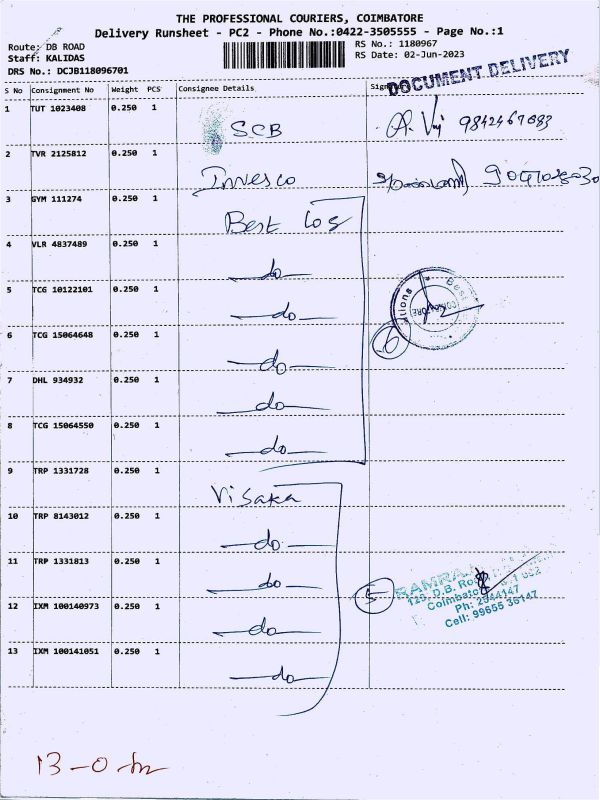 THE PROFESSIONAL COURIERS, COIMBATORE
Delivery Runsheet - PC2 - Phone No.:0422-3505555 - Page No.:1
Route: DB ROAD RS No.: 1180967
Staff: KALIDAS RS Date: 02-Jun-2023
DRS No.: DCJB118096701
DOCUMENT DELIVERY
S No Consignment No Weight PCS Consignee Details
1 TUT 1023408 0.250 1 SCB
2 TVR 2125812 0.250 1 Invesco
3 GYM 111274 0.250 1 Best Log
4 VLR 4837489 0.250 1 do
5 TCG 10122101 0.250 1 do
6 TCG 15064648 0.250 1 do
6
7 DHL 934932 0.250 1 do
8 TCG 15064550 0.250 1 do
9 TRP 1331728 0.250 1 Visaka
10 TRP 8143012 0.250 1 do
11 TRP 1331813 0.250 1 do
5
123, D.B. Road
12 IXM 100140973 0.250 1 do
Ph: 2544147
Cell: 99655 36147
13 IXM 100141051 0.250 1 do